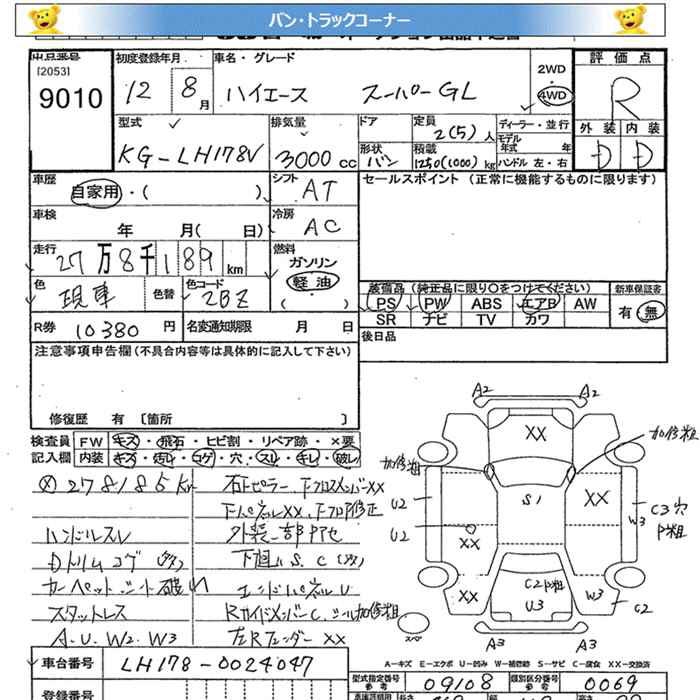 バン・トラックコーナー
出品番号 初度登録年月 車名・グレード 評価点
[2053]
9010
12 8月 ハイエース スーパーGL
2WD
・
4WD
R
型式 排気量 ドア 定員 2(5)人 ディーラー・並行 外装 内装
モデル年式 年
KG-LH178V 3000cc 形状 バン 積載 1250(1000)kg ハンドル 左・右 D D
車歴 自家用・( ) シフト AT セールスポイント (正常に機能するものに限ります)
車検 年 月( 日) 冷房 AC
走行 27万8千189km 燃料 ガソリン
軽油
( )
色 現車 色替 色コード 2BZ
装備品 (純正品に限り○をつけてください) 新車保証書
PS PW ABS エアB AW 有・無
SR ナビ TV カワ
R券 10380円 名変通知期限 月 日 後日品
注意事項申告欄(不具合内容等は具体的に記入して下さい)
修復歴 有 [箇所 ]
検査員 FW キズ・飛石・ヒビ割・リペア跡・×要
記入欄 内装 キズ・汚れ・コゲ・穴・スリ・キレ・破レ
278185K
石Fピラー、FクロスメンバーXX
ハンドルスレ
外装一部P
Dトリムコゲ
下廻り S.C
カーペット、シート破れ
エンドパネルU
スタットレス
A.U.W2.W3
左RフェンダーXX
A2 A2
XX
加修粗
加修粗
U2
S1
XX
U2
W3
C3穴
P粗
XX
XX
C2P粗
U3
W3
C2
スペア
A3 A3
A-キズ E-エクボ U-凹み W-補修跡 S-サビ C-腐食 XX-交換済
車台番号 LH178-0024047
型式指定番号 参考 09108 類別区分番号 参考 0069
登録番号